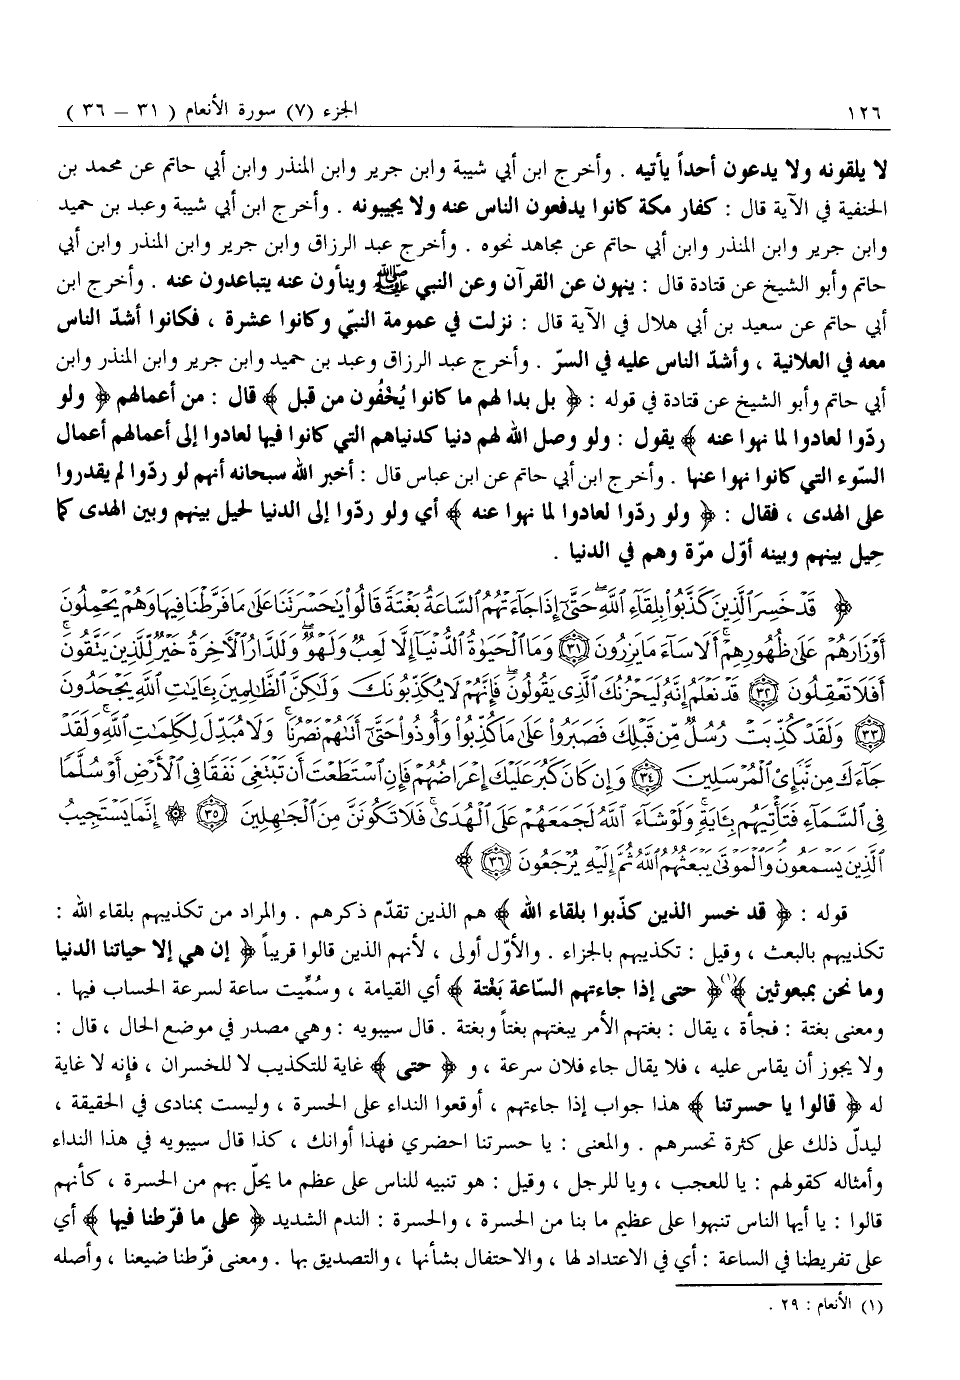 ١٢٦ الجزء (٧) سورة الأنعام ( ٣١ – ٣٦ )
لا يلقونه ولا يدعون أحداً يأتيه . وأخرج ابن أبي شيبة وابن جرير وابن المنذر وابن أبي حاتم عن محمد بن
الحنفية في الآية قال : كفار مكة كانوا يدفعون الناس عنه ولا يجيبونه . وأخرج ابن أبي شيبة وعبد بن حميد
وابن جرير وابن المنذر وابن أبي حاتم عن مجاهد نحوه . وأخرج عبد الرزاق وابن جرير وابن المنذر وابن أبي
حاتم وأبو الشيخ عن قتادة قال : ينهون عن القرآن وعن النبي ﷺ وينأون عنه يتباعدون عنه . وأخرج ابن
أبي حاتم عن سعيد بن أبي هلال في الآية قال : نزلت في عمومة النبّي وكانوا عشرة ، فكانوا أشدّ الناس
معه في العلانية ، وأشدّ الناس عليه في السرّ . وأخرج عبد الرزاق وعبد بن حميد وابن جرير وابن المنذر وابن
أبي حاتم وأبو الشيخ عن قتادة في قوله : ﴿ بل بدا لهم ما كانوا يُخْفُون من قبل ﴾ قال : من أعمالهم ﴿ ولو
ردّوا لعادوا لما نهوا عنه ﴾ يقول : ولو وصل الله لهم دنيا كدنياهم التي كانوا فيها لعادوا إلى أعمالهم أعمال
السّوء التي كانوا نهوا عنها . وأخرج ابن أبي حاتم عن ابن عباس قال : أخبر الله سبحانه أنهم لو ردّوا لم يقدروا
على الهدى ، فقال : ﴿ ولو ردّوا لعادوا لما نهوا عنه ﴾ أي ولو ردّوا إلى الدنيا لحيل بينهم وبين الهدى كما
حِيل بينهم وبينه أوّل مرّة وهم في الدنيا .
﴿ قَدْ خَسِرَ ٱلَّذِينَ كَذَّبُوا۟ بِلِقَآءِ ٱللَّهِ ۖ حَتَّىٰٓ إِذَا جَآءَتْهُمُ ٱلسَّاعَةُ بَغْتَةً قَالُوا۟ يَٰحَسْرَتَنَا عَلَىٰ مَا فَرَّطْنَا فِيهَا وَهُمْ يَحْمِلُونَ
أَوْزَارَهُمْ عَلَىٰ ظُهُورِهِمْ ۚ أَلَا سَآءَ مَا يَزِرُونَ ٣١ وَمَا ٱلْحَيَوٰةُ ٱلدُّنْيَآ إِلَّا لَعِبٌ وَلَهْوٌ ۖ وَلَلدَّارُ ٱلْءَاخِرَةُ خَيْرٌ لِّلَّذِينَ يَتَّقُونَ ۗ
أَفَلَا تَعْقِلُونَ ٣٢ قَدْ نَعْلَمُ إِنَّهُۥ لَيَحْزُنُكَ ٱلَّذِى يَقُولُونَ ۖ فَإِنَّهُمْ لَا يُكَذِّبُونَكَ وَلَٰكِنَّ ٱلظَّٰلِمِينَ بِـَٔايَٰتِ ٱللَّهِ يَجْحَدُونَ
٣٣ وَلَقَدْ كُذِّبَتْ رُسُلٌ مِّن قَبْلِكَ فَصَبَرُوا۟ عَلَىٰ مَا كُذِّبُوا۟ وَأُوذُوا۟ حَتَّىٰٓ أَتَىٰهُمْ نَصْرُنَا ۚ وَلَا مُبَدِّلَ لِكَلِمَٰتِ ٱللَّهِ ۚ وَلَقَدْ
جَآءَكَ مِن نَّبَإِى۟ ٱلْمُرْسَلِينَ ٣٤ وَإِن كَانَ كَبُرَ عَلَيْكَ إِعْرَاضُهُمْ فَإِنِ ٱسْتَطَعْتَ أَن تَبْتَغِىَ نَفَقًا فِى ٱلْأَرْضِ أَوْ سُلَّمًا
فِى ٱلسَّمَآءِ فَتَأْتِيَهُم بِـَٔايَةٍ ۚ وَلَوْ شَآءَ ٱللَّهُ لَجَمَعَهُمْ عَلَى ٱلْهُدَىٰ ۚ فَلَا تَكُونَنَّ مِنَ ٱلْجَٰهِلِينَ ٣٥ ۞ إِنَّمَا يَسْتَجِيبُ
ٱلَّذِينَ يَسْمَعُونَ ۘ وَٱلْمَوْتَىٰ يَبْعَثُهُمُ ٱللَّهُ ثُمَّ إِلَيْهِ يُرْجَعُونَ ٣٦ ﴾
قوله : ﴿ قد خسر الذين كذّبوا بلقاء الله ﴾ هم الذين تقدّم ذكرهم . والمراد من تكذيبهم بلقاء الله :
تكذيبهم بالبعث ، وقيل : تكذيبهم بالجزاء . والأوّل أولى ، لأنهم الذين قالوا قريباً ﴿ إن هي إلا حياتنا الدنيا
وما نحن بمبعوثين ﴾(١) ﴿ حتى إذا جاءتهم السّاعة بَغْتة ﴾ أي القيامة ، وسُمِّيت ساعة لسرعة الحساب فيها .
ومعنى بغتة : فجأة ، يقال : بغتهم الأمر يبغتهم بغتاً وبغتة . قال سيبويه : وهي مصدر في موضع الحال ، قال :
ولا يجوز أن يقاس عليه ، فلا يقال جاء فلان سرعة ، و ﴿ حتى ﴾ غاية للتكذيب لا للخسران ، فإنه لا غاية
له ﴿ قالوا يا حسرتنا ﴾ هذا جواب إذا جاءتهم ، أوقعوا النداء على الحسرة ، وليست بمنادى في الحقيقة ،
ليدلّ ذلك على كثرة تحسرهم . والمعنى : يا حسرتنا احضري فهذا أوانك ، كذا قال سيبويه في هذا النداء
وأمثاله كقولهم : يا للعجب ، ويا للرجل ، وقيل : هو تنبيه للناس على عظم ما يحلّ بهم من الحسرة ، كأنهم
قالوا : يا أيها الناس تنبهوا على عظيم ما بنا من الحسرة ، والحسرة : الندم الشديد ﴿ على ما فرّطنا فيها ﴾ أي
على تفريطنا في الساعة : أي في الاعتداد لها ، والاحتفال بشأنها ، والتصديق بها . ومعنى فرّطنا ضيعنا ، وأصله
(١) الأنعام : ٢٩ .